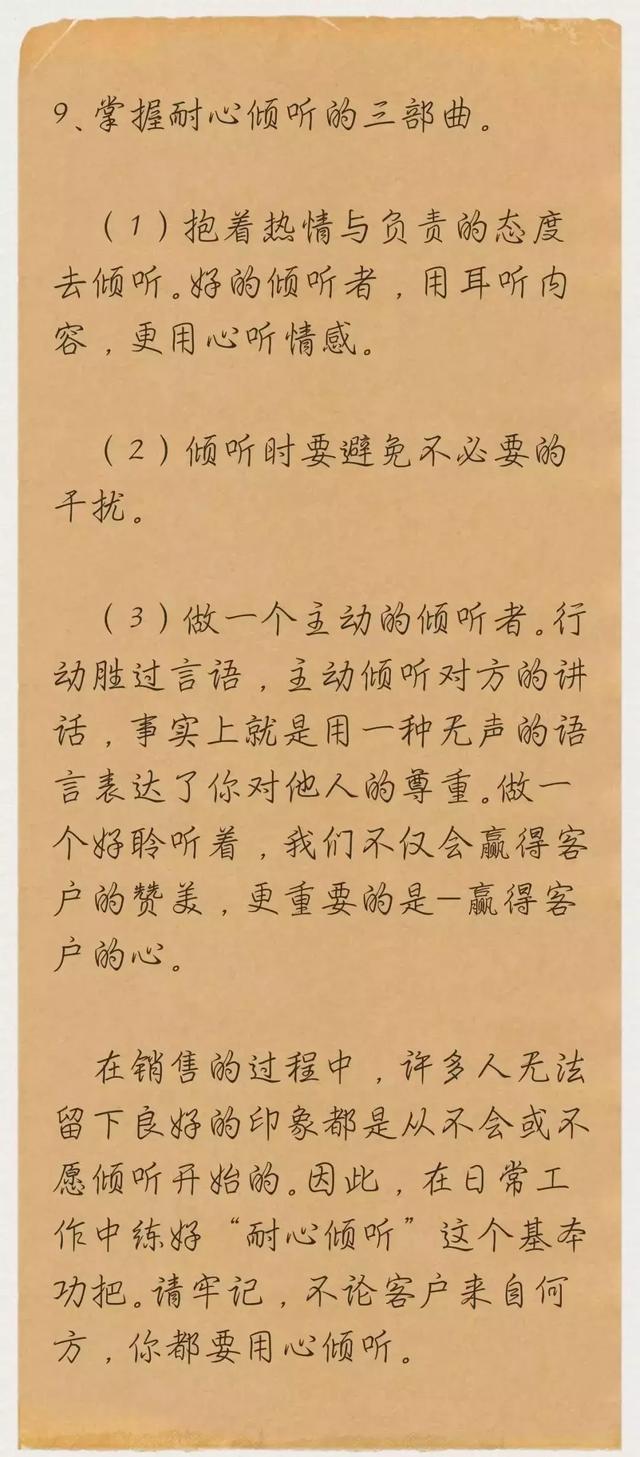 9、掌握耐心倾听的三部曲。
（1）抱着热情与负责的态度
去倾听。好的倾听者，用耳听内
容，更用心听情感。
（2）倾听时要避免不必要的
干扰。
（3）做一个主动的倾听者。行
动胜过言语，主动倾听对方的讲
话，事实上就是用一种无声的语
言表达了你对他人的尊重。做一
个好聆听着，我们不仅会赢得客
户的赞美，更重要的是—赢得客
户的心。
在销售的过程中，许多人无法
留下良好的印象都是从不会或不
愿倾听开始的。因此，在日常工
作中练好“耐心倾听”这个基本
功把。请牢记，不论客户来自何
方，你都要用心倾听。